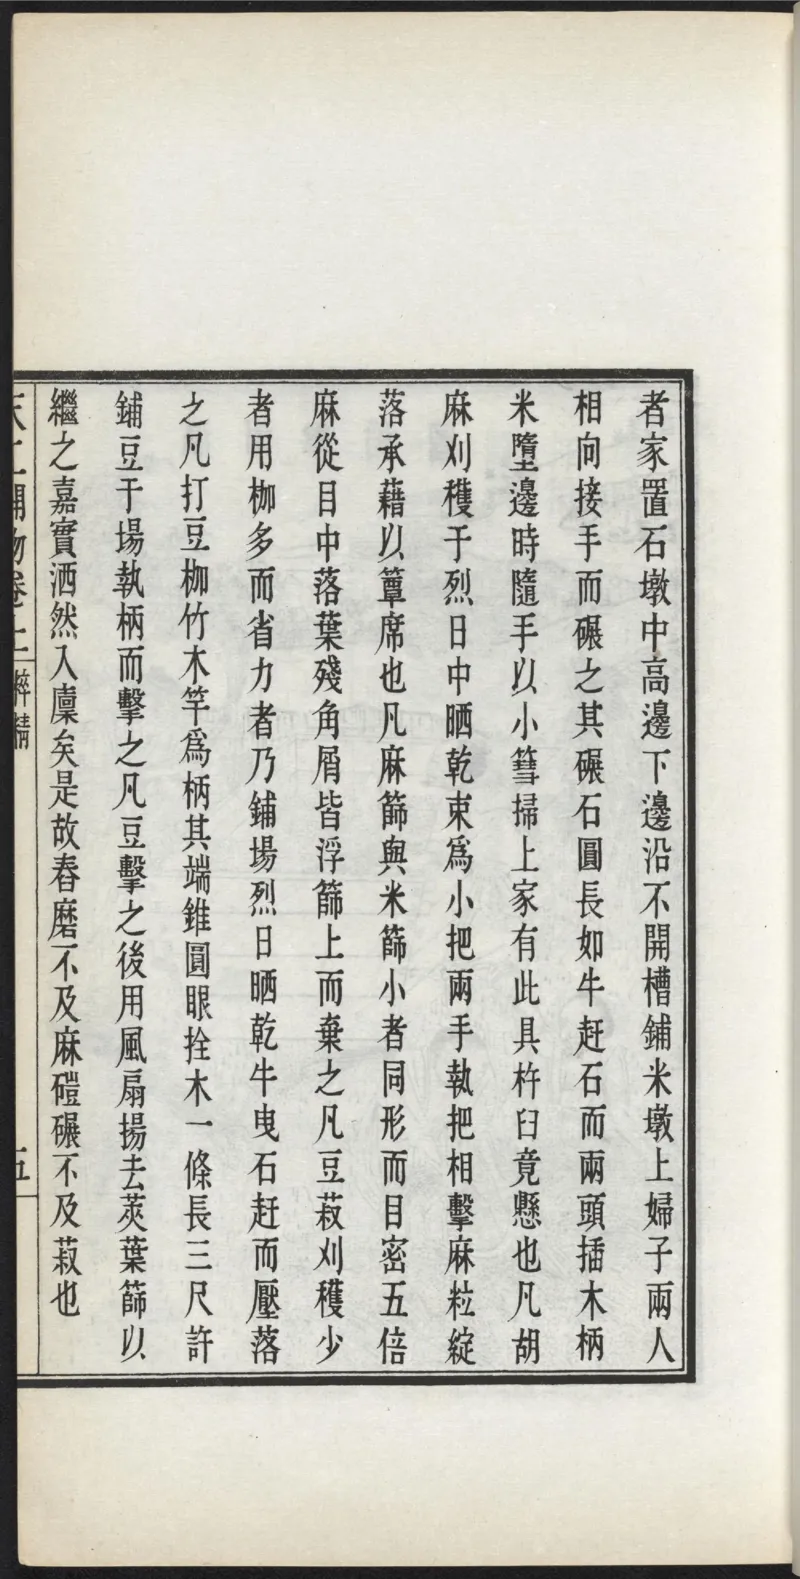 者家置石墩中高邊下邊沿不開槽鋪米墩上婦子兩人
相向接手而碾之其碾石圓長如牛赶石而兩頭插木柄
米墮邊時隨手以小篲掃上家有此具杵臼竟懸也凡胡
麻刈穫于烈日中晒乾束爲小把兩手執把相擊麻粒綻
落承藉以簟席也凡麻篩與米篩小者同形而目密五倍
麻從目中落葉殘角屑皆浮篩上而棄之凡豆菽刈穫少
者用枷多而省力者乃鋪場烈日晒乾牛曳石赶而壓落
之凡打豆枷竹木竿爲柄其端錐圓眼拴木一條長三尺許
鋪豆于場執柄而擊之凡豆擊之後用風扇揚去莢葉篩以
繼之嘉實洒然入廩矣是故舂磨不及麻磑碾不及菽也
天工開物卷上 粹精 五